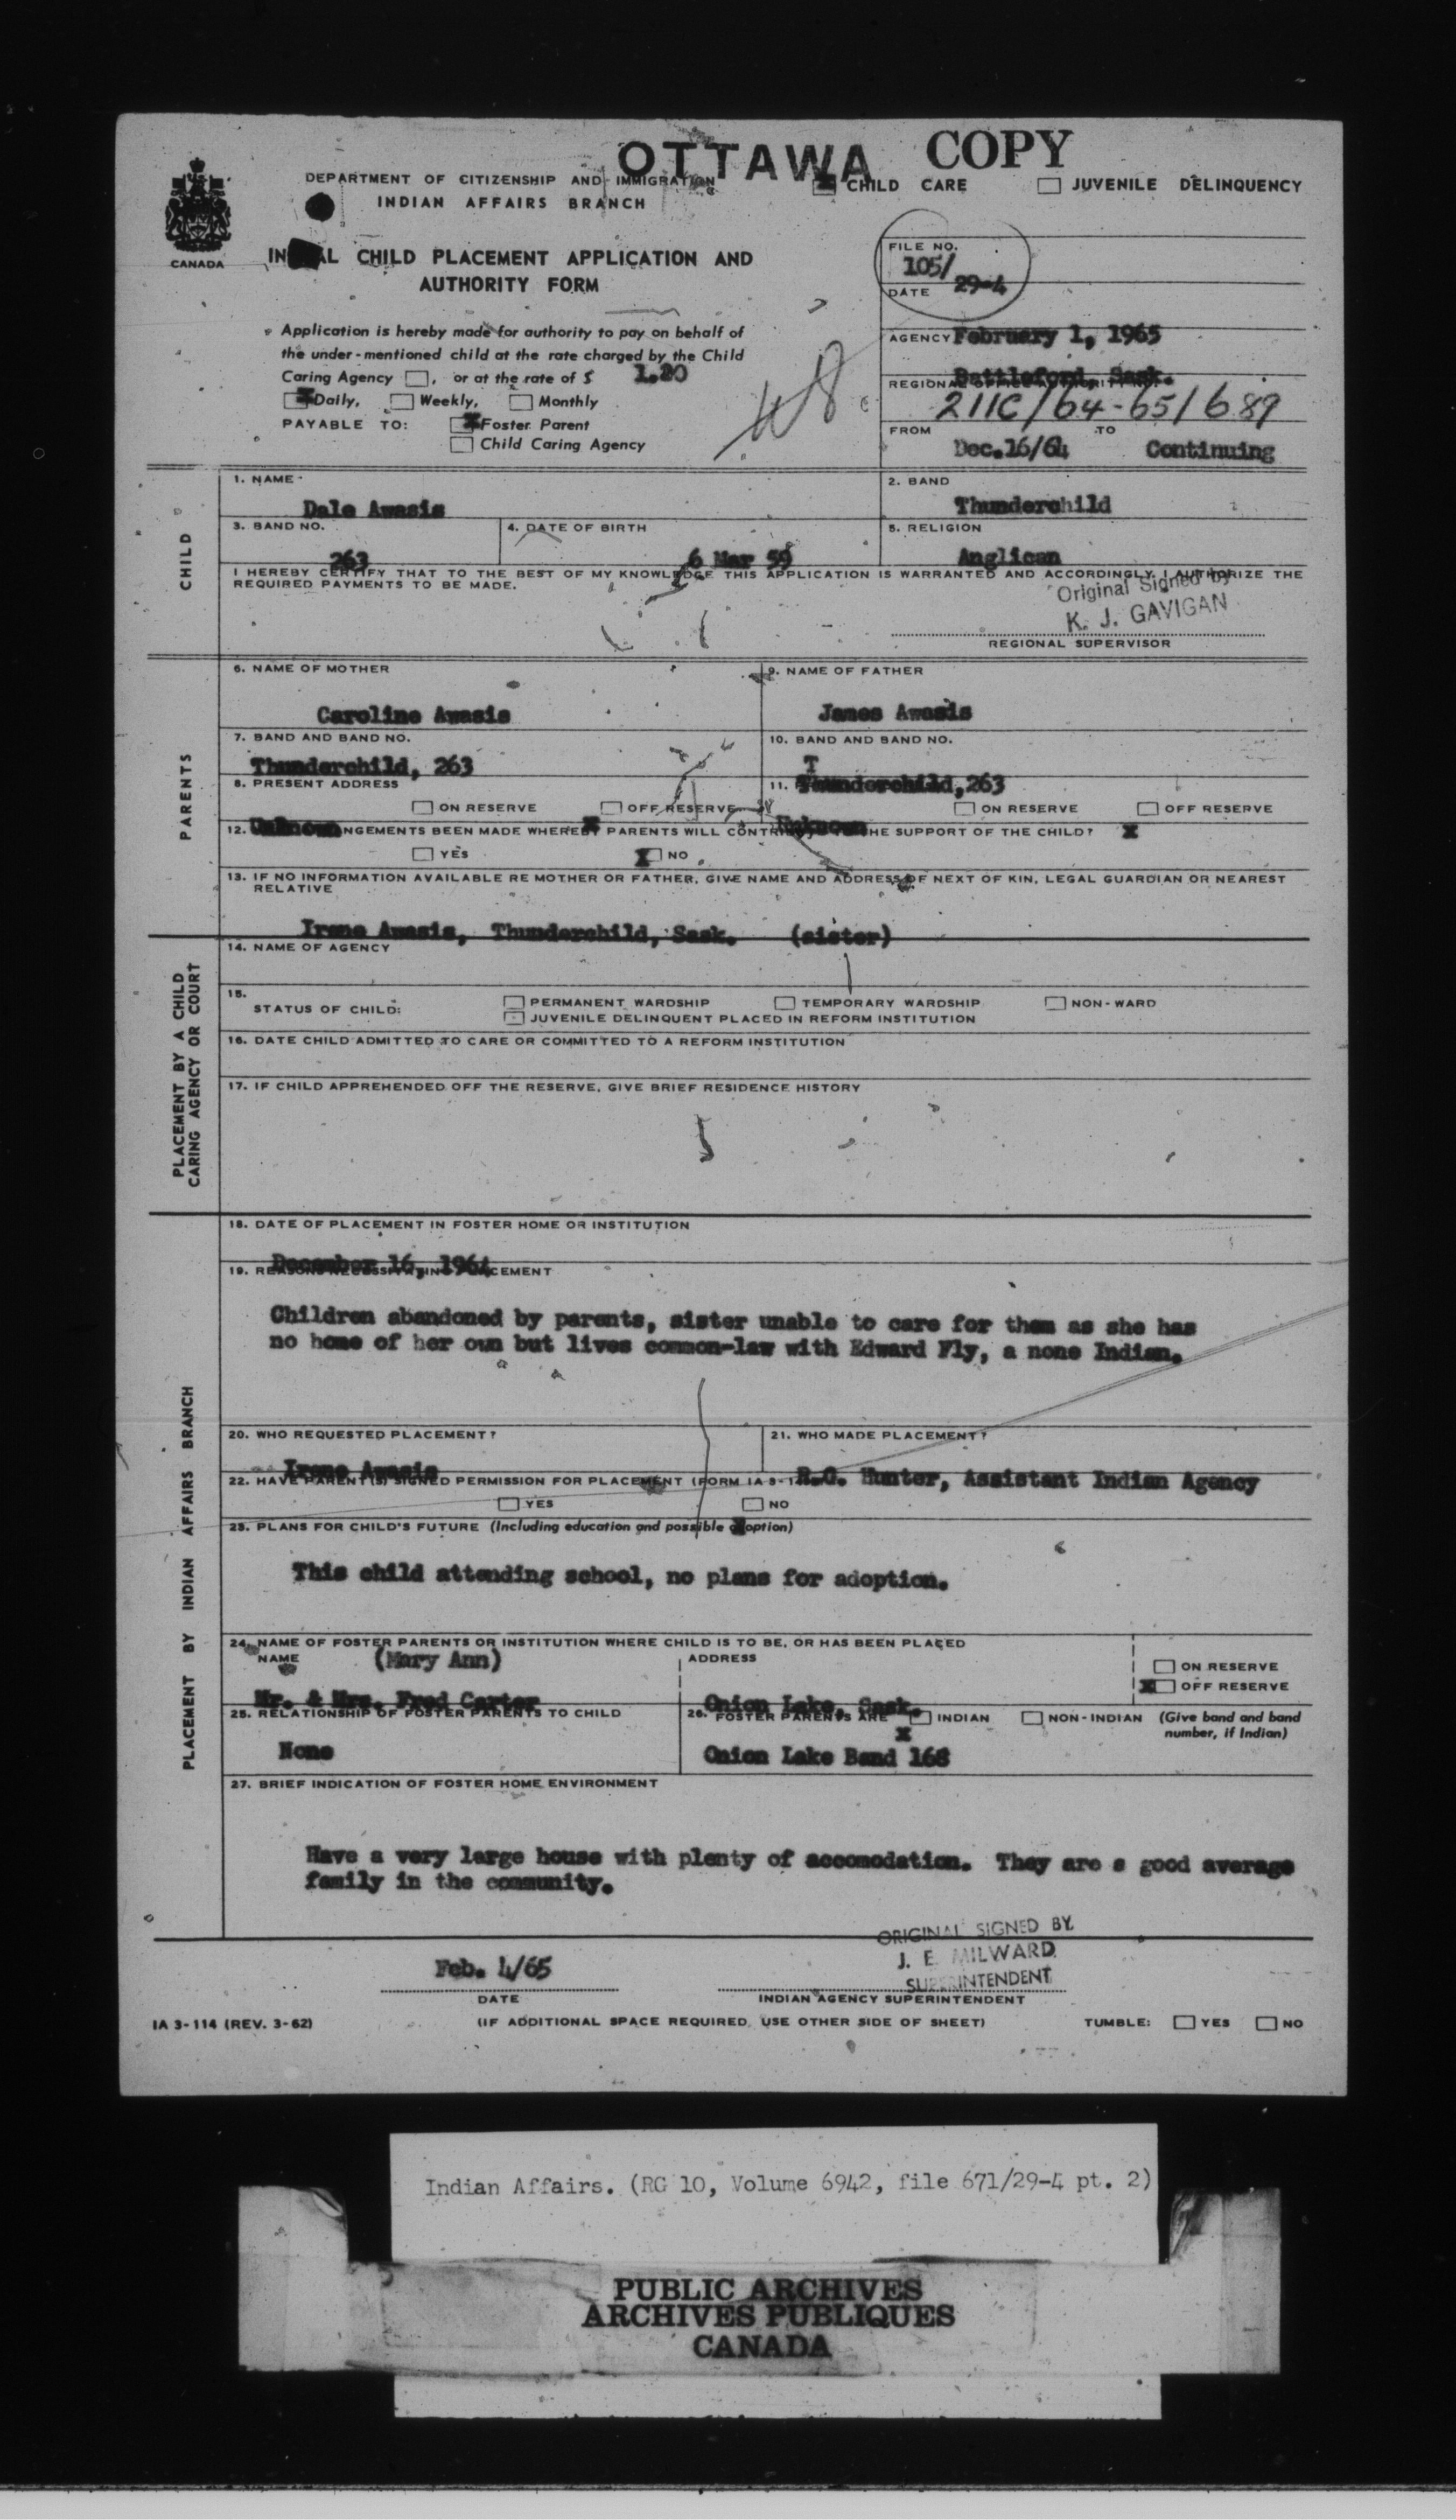 OTTAWA COPY
DEPARTMENT OF CITIZENSHIP AND IMMIGRATION
INDIAN AFFAIRS BRANCH
CHILD CARE JUVENILE DELINQUENCY
CANADA
CHILD PLACEMENT APPLICATION AND
AUTHORITY FORM
FILE NO.
105/
29-4
DATE
Application is hereby made for authority to pay on behalf of
the under-mentioned child at the rate charged by the Child
Caring Agency , or at the rate of $ 1.20
X Daily, Weekly, Monthly
PAYABLE TO: X Foster Parent
Child Caring Agency
AGENCY February 1, 1965
Battleford, Sask.
REGIONAL OFFICE AUTHORITY NO.
211C/64-65/689
FROM TO
Dec.16/64 Continuing
CHILD
1. NAME
Dale Awasis
2. BAND
Thunderchild
3. BAND NO.
263
4. DATE OF BIRTH
6 Mar 59
5. RELIGION
Anglican
I HEREBY CERTIFY THAT TO THE BEST OF MY KNOWLEDGE THIS APPLICATION IS WARRANTED AND ACCORDINGLY, I AUTHORIZE THE
REQUIRED PAYMENTS TO BE MADE.
Original Signed by
K. J. GAVIGAN
REGIONAL SUPERVISOR
PARENTS
6. NAME OF MOTHER
Caroline Awasis
9. NAME OF FATHER
James Awasis
7. BAND AND BAND NO.
Thunderchild, 263
10. BAND AND BAND NO.
T
Thunderchild,263
8. PRESENT ADDRESS
ON RESERVE OFF RESERVE
11.
ON RESERVE OFF RESERVE
Unknown X Unknown X
12. NGEMENTS BEEN MADE WHEREBY PARENTS WILL CONTR HE SUPPORT OF THE CHILD?
YES X NO
13. IF NO INFORMATION AVAILABLE RE MOTHER OR FATHER, GIVE NAME AND ADDRESS OF NEXT OF KIN, LEGAL GUARDIAN OR NEAREST
RELATIVE
Irene Awasis, Thunderchild, Sask. (sister)
PLACEMENT BY A CHILD
CARING AGENCY OR COURT
14. NAME OF AGENCY
15.
STATUS OF CHILD: PERMANENT WARDSHIP TEMPORARY WARDSHIP NON-WARD
JUVENILE DELINQUENT PLACED IN REFORM INSTITUTION
16. DATE CHILD ADMITTED TO CARE OR COMMITTED TO A REFORM INSTITUTION
17. IF CHILD APPREHENDED OFF THE RESERVE, GIVE BRIEF RESIDENCE HISTORY
PLACEMENT BY INDIAN AFFAIRS BRANCH
18. DATE OF PLACEMENT IN FOSTER HOME OR INSTITUTION
December 16, 1964
19. REASONS NECESSITATING PLACEMENT
Children abandoned by parents, sister unable to care for them as she has
no home of her own but lives common-law with Edward Fly, a none Indian.
20. WHO REQUESTED PLACEMENT?
Irene Awasis
21. WHO MADE PLACEMENT?
R.G. Hunter, Assistant Indian Agency
22. HAVE PARENT(S) SIGNED PERMISSION FOR PLACEMENT (FORM IA-3-1
YES NO
23. PLANS FOR CHILD'S FUTURE (Including education and possible adoption)
This child attending school, no plans for adoption.
24. NAME OF FOSTER PARENTS OR INSTITUTION WHERE CHILD IS TO BE, OR HAS BEEN PLACED
NAME (Mary Ann)
Mr. & Mrs. Fred Carter
ADDRESS
Onion Lake, Sask.
ON RESERVE
X OFF RESERVE
25. RELATIONSHIP OF FOSTER PARENTS TO CHILD
None
26. FOSTER PARENTS ARE INDIAN NON-INDIAN (Give band and band
number, if Indian)
X
Onion Lake Band 168
27. BRIEF INDICATION OF FOSTER HOME ENVIRONMENT
Have a very large house with plenty of accomodation. They are a good average
family in the community.
Feb. 4/65
DATE
ORIGINAL SIGNED BY
J. E. MILWARD
SUPERINTENDENT
INDIAN AGENCY SUPERINTENDENT
IA 3-114 (REV. 3-62) (IF ADDITIONAL SPACE REQUIRED, USE OTHER SIDE OF SHEET) TUMBLE: YES NO
Indian Affairs. (RG 10, Volume 6942, file 671/29-4 pt. 2)
PUBLIC ARCHIVES
ARCHIVES PUBLIQUES
CANADA